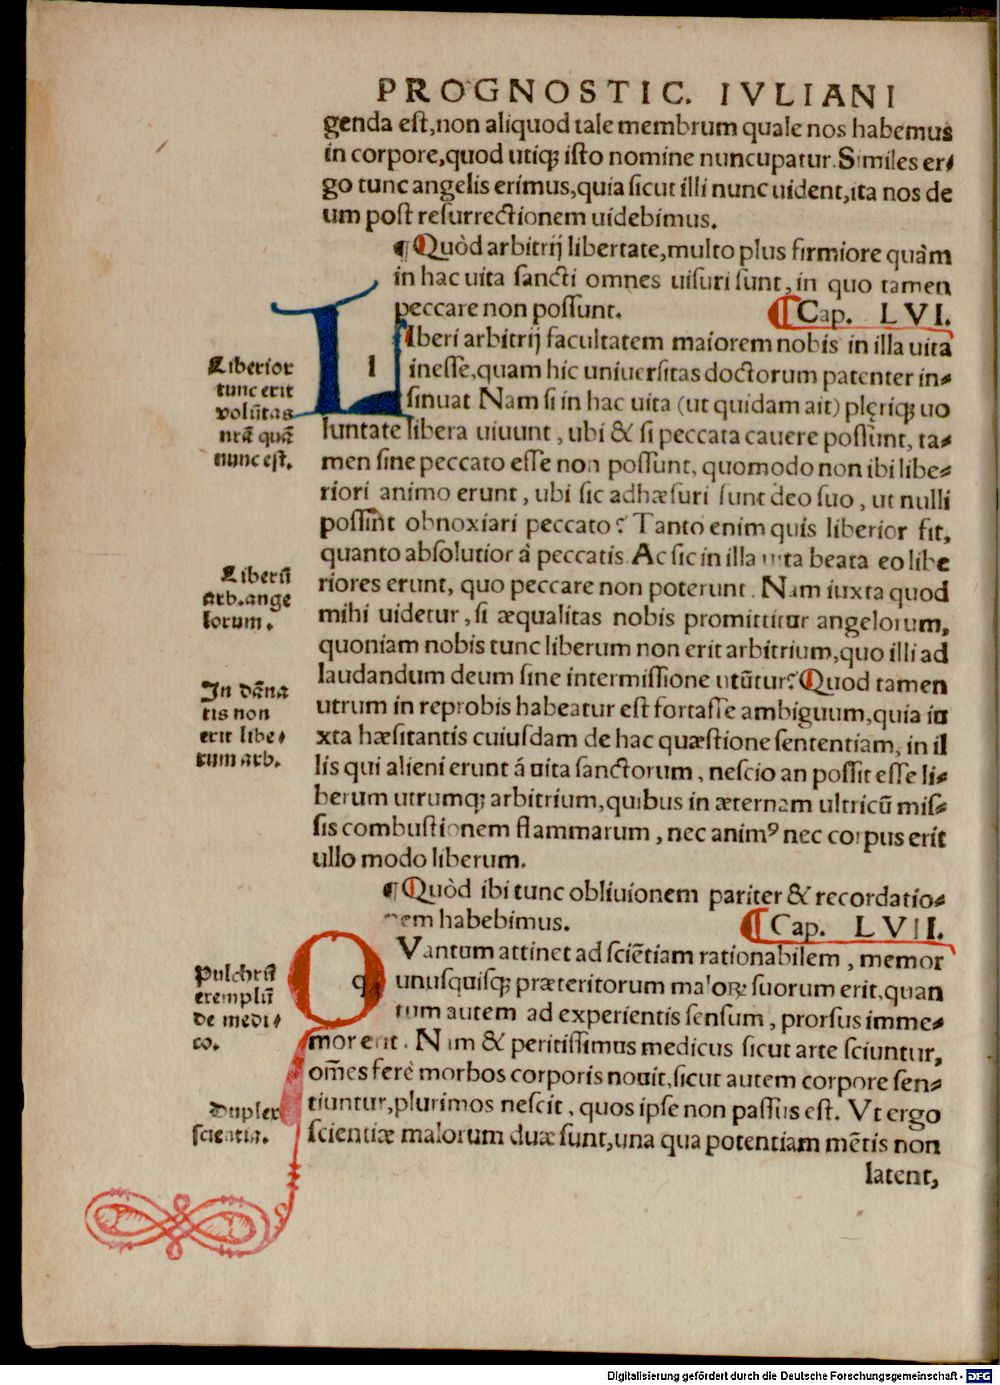 PROGNOSTIC. IVLIANI
genda est,non aliquod tale membrum quale nos habemus
in corpore,quod utiqꝫ isto nomine nuncupatur.Similes er⸗
go tunc angelis erimus,quia sicut illi nunc uident,ita nos de
um post resurrectionem uidebimus.
¶Quòd arbitrij libertate,multo plus firmiore quàm
in hac uita sancti omnes uisuri sunt,in quo tamen
peccare non possunt. ¶Cap. LVI.
LIberi arbitrij facultatem maiorem nobis in illa uita
inesse,quam hic uniuersitas doctorum patenter in⸗
sinuat Nam si in hac uita (ut quidam ait) plęriqꝫ uo
luntate libera uiuunt, ubi & si peccata cauere possunt, ta⸗
men sine peccato esse non possunt, quomodo non ibi libe⸗
riori animo erunt, ubi sic adhæsuri sunt deo suo, ut nulli
possint obnoxiari peccato? Tanto enim quis liberior fit,
quanto absolutior á peccatis. Ac sic in illa uita beata eo libe
riores erunt, quo peccare non poterunt. Nam iuxta quod
mihi uidetur, si æqualitas nobis promittitur angelorum,
quoniam nobis tunc liberum non erit arbitrium,quo illi ad
laudandum deum sine intermissione utūtur? Quod tamen
utrum in reprobis habeatur est fortasse ambiguum,quia iu
xta hæsitantis cuiusdam de hac quæstione sententiam, in il
lis qui alieni erunt á uita sanctorum, nescio an possit esse li⸗
berum utrumqꝫ arbitrium,quibus in æternam ultricū mis⸗
sis combustionem flammarum, nec animꝰ nec corpus erit
ullo modo liberum.
¶Quòd ibi tunc obliuionem pariter & recordatio⸗
nem habebimus. ¶Cap. LVII.
QVantum attinet ad sciētiam rationabilem, memor
unusquisqꝫ præteritorum maloꝝ suorum erit,quan
tum autem ad experientis sensum, prorsus imme⸗
mor erit. Nam & peritissimus medicus sicut arte sciuntur,
om̄es ferè morbos corporis nouit,sicut autem corpore sen⸗
tiuntur,plurimos nescit, quos ipse non passus est. Vt ergo
scientiæ malorum duæ sunt,una qua potentiam mētis non
latent,
Liberior
tunc erit
volūtas
nr̄ā quā
nunc est.
Liberū
arb.ange
lorum.
In dāna
tis non
erit libe⸗
rum arb.
Pulchrū
exemplū
de medi⸗
co.
Duplex
scientia.
Digitalisierung gefördert durch die Deutsche Forschungsgemeinschaft - DFG